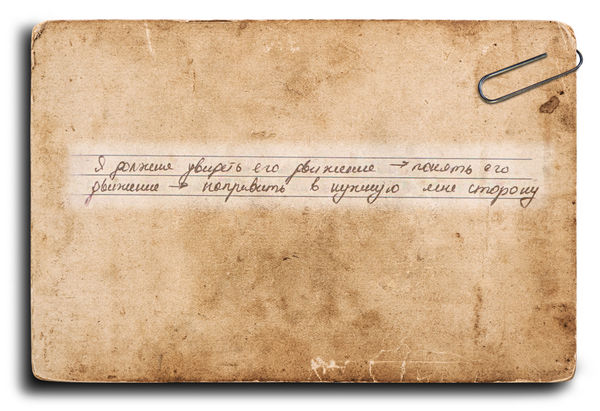 Я должна увидеть его движение → понять его
движение → поправить в нужную мне сторону